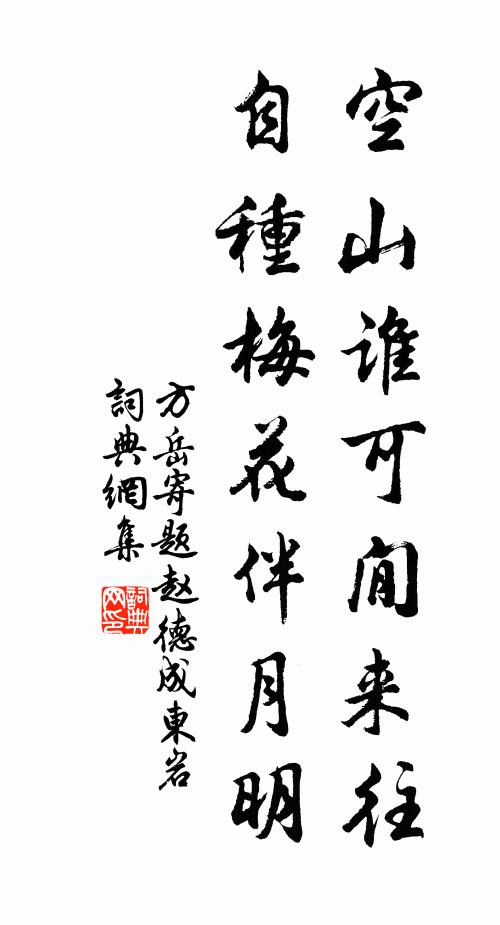 空山谁可閒来往
自種梅花伴月明
方岳寄题赵德成東岩
詞典網集
詞典
网印